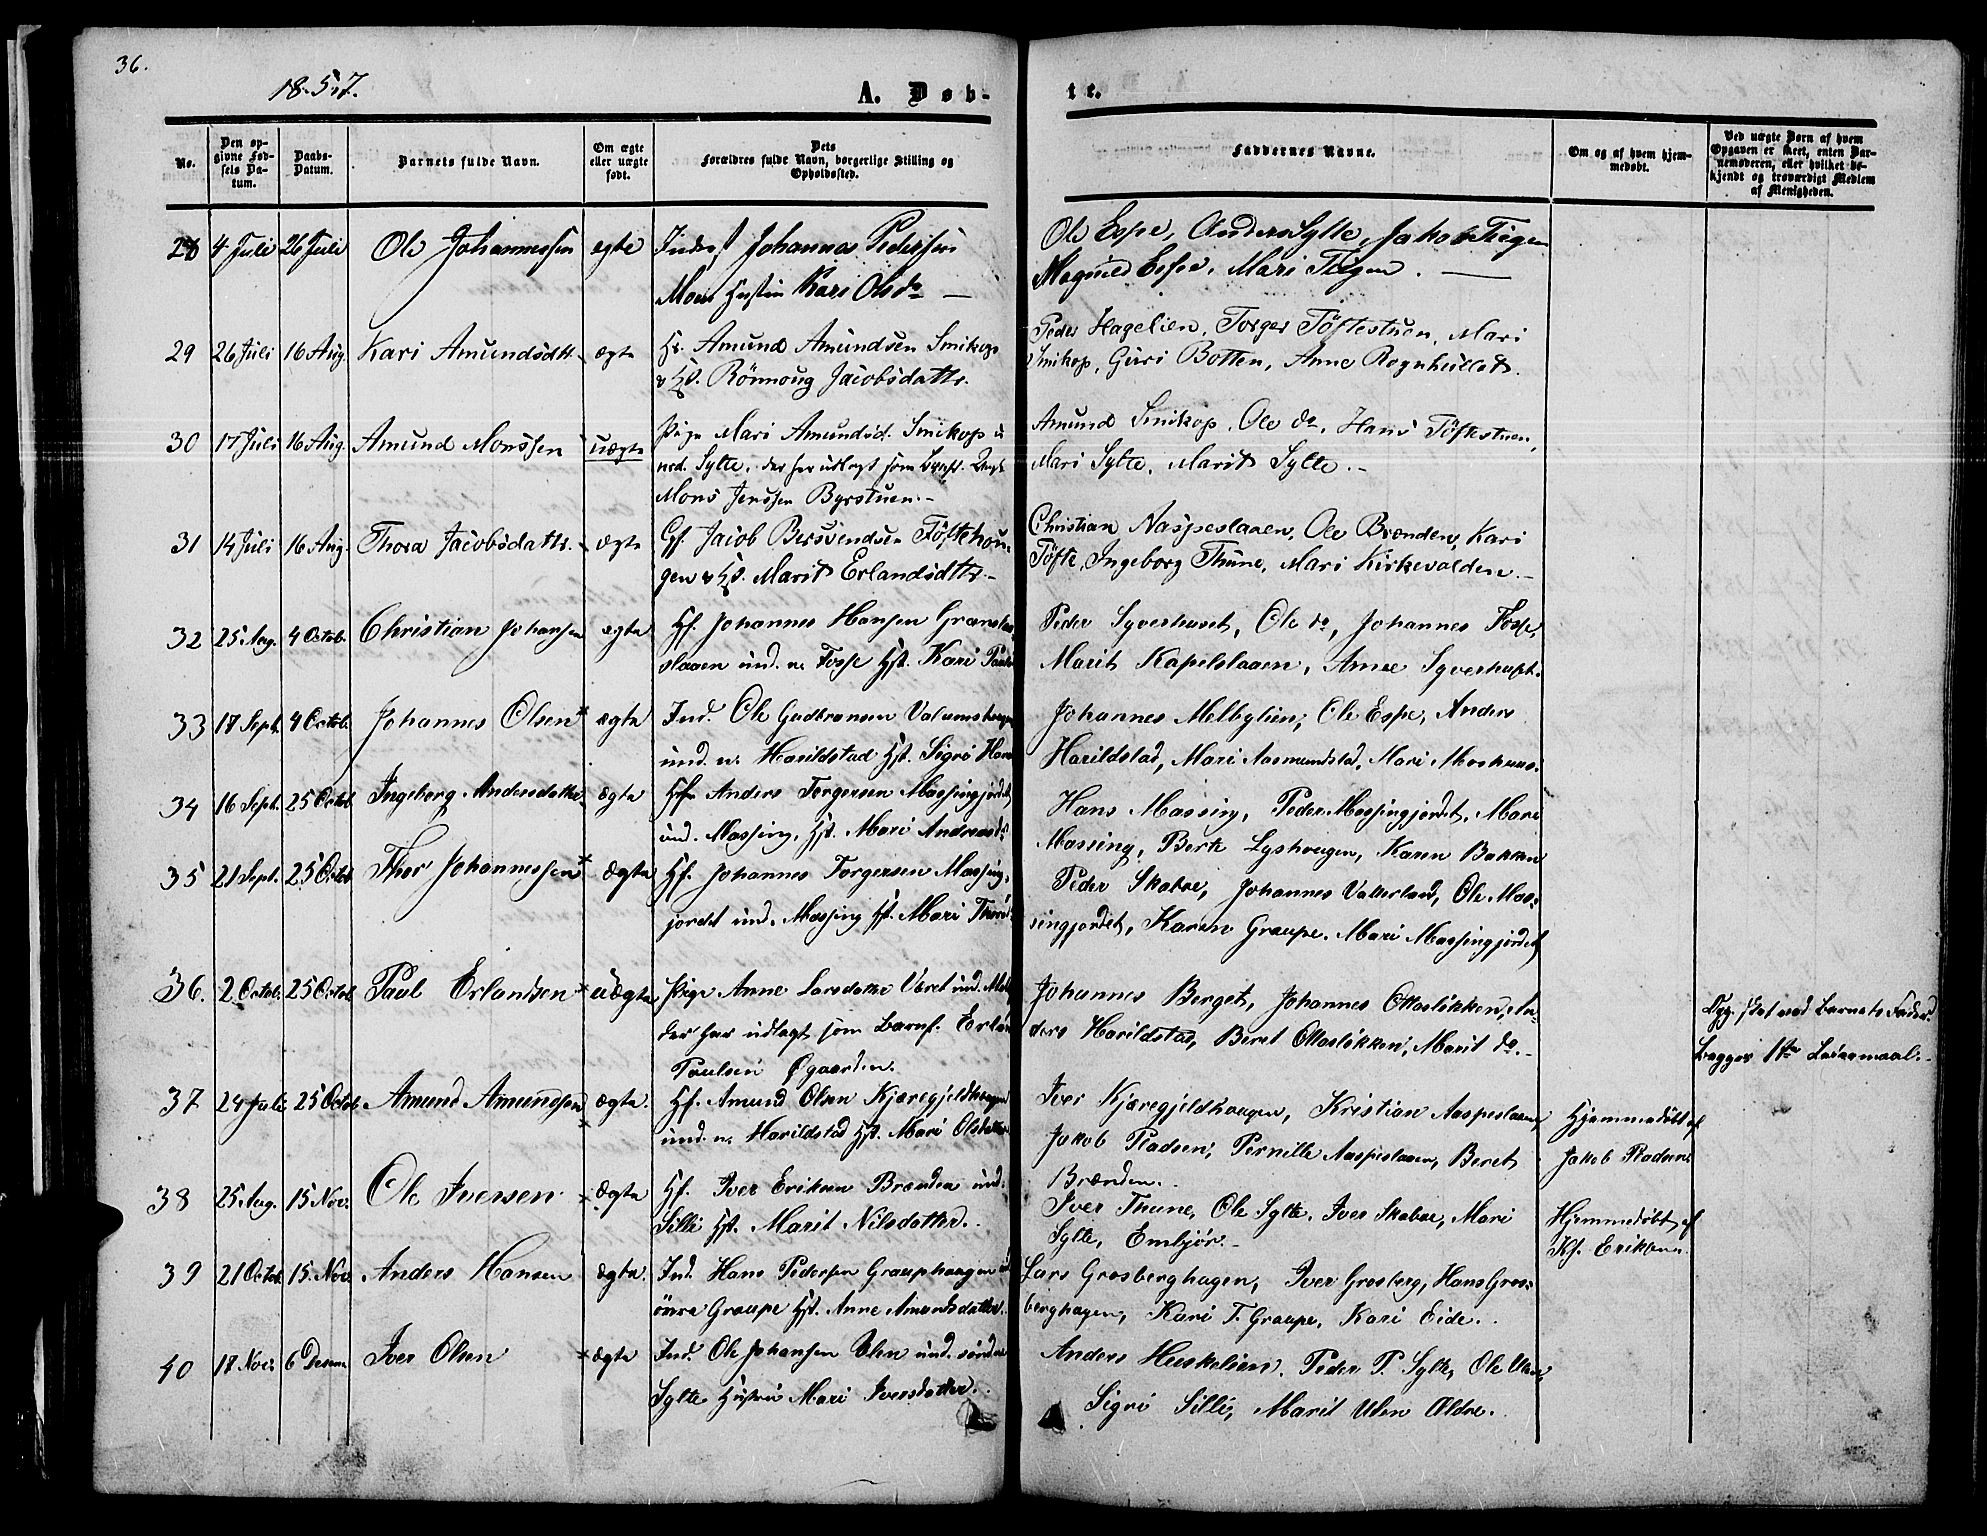 36.
1857.
A. Døb-
te.
No.
Den op-
givne Fød-
sels Da-
tum.
Daabs-
Datum.
Barnets fulde Navn.
Om ægte
eller uægte
født.
Dets
Forældres fulde Navn, borgerlige Stilling og
Opholdssted.
Faddernes Navne.
Om og af hvem hjem-
medøbt.
Ved uægte Børn af hvem
Opgaven er skeet, enten Bar-
nemoderen, eller hvilket be-
kjendt og troværdigt Medlem
af Menigheden.
28 4 Juli 26 Juli Ole Johannessen egte Johannes Pedersen
Kari Olsd.
Ole Espe, Anders Sylte, Jakob Teigen
Magnild Espe, Mari Teigen.
29 26 Juli 16 Aug. Kari Amundsdtr. ægte Hf. Amund Amundsen Smikop
Rönnoug Jacobsdattr.
Peder Hagelien, Torger Töftestuen, Mari
Smikop, Guri Botten, Anne Rognhullet.
30 17 Juli 16 Aug. Amund Monssen uægte Pige Mari Amundsd. Smikop u
ned. Sylte, der har udlagt som Barnef.
Mons Jenssen Byrstuen.
Amund Smikop, Ole do, Hans Töftestuen,
Mari Sylte, Marit Sylte.
31 14 Juli 16 Aug. Thora Jacobsdattr. ægte Gf. Jacob Bersvendsen Töftehou-
gen Marit Erlandsdtr.
Christian Naspeslaaen, Ole Brenden, Kari
Töfte, Ingeborg Thune, Mari Kirkevolden.
32 25 Aug. 4 Octob. Christian Johansen egte Hf. Johannes Hansen
slaaen und. n. Fosse Hst. Kari
Peder Syverhuset, Ole do, Johannes Fosse,
Marit Kapelslaaen, Anne Syverhuset.
33 18 Sept. 4 Octob. Johannes Olsen ægte Ind. Ole Gudbransen Valumshougen
und. n. Harildstad Hst. Sigri Hans
Johannes Melbylien, Ole Espe, Anders
Harildstad, Mari Aasmundstad, Mari Moshuus.
34 16 Sept. 25 Octob. Ingeborg Andersdatter ægte Hf. Anders Torgersen Massingjordet
und. Massing, Hst. Mari Andreasd.
Hans Massing, Peder Massingjordet, Mari
Massing, Berte Lyshougen, Karen Bakken
35 21 Sept. 25 Octob Thor Johannessen ægte Hf. Johannes Torgersen Massing-
jordet und. Massing Hst. Mari Thord
Peder Skaboe, Johannes Valterlad, Ole Mas-
singjordet, Karen Graupe, Mari Massingjordet
36. 2 Octob. 25 Octob Paul Erlandsen uægte Pige Anne Larsdatter
der har udlagt som Barnf. Erlan
Paulsen Øgaarden.
Johannes Berget, Johannes Ottesløkken, An-
ders Harildstad, Beret Ottesløkken, Marit do.
Barnets Fader
Begges 1te Leiermaal.
37 24 Juli 25 Octob Amund Amundsen ægte. Hf. Amund Olsen Kjæregjeldhougen
und. n. Harildstad Hst. Mari Olsdatter
Iver Kjæregjeldhougen, Kristian Aaspeslaaen,
Jakob Pladsen, Pernille Aaspeslaaen, Beret
Brænden.
Hjemmedøbt af
Jakob Pladsen
38 25 Aug. 15 Nov. Ole Iversen ægte Hf. Iver Eriksen Brænden und.
Sille Hst. Marit Nilsdatter.
Iver Thune, Ole Sylte, Iver Skaboe, Mari
Sylte, Embjør.
Hjemmedøbt af
Kf. Eriksen.
39 21 Octob 15 Nov Anders Hansen ægte Ind. Hans Pedersen Grauphaugen
övre Graupe Hst. Anne Amundsdatter.
Lars Grosberghagen, Iver Grosberg, Hans Gros-
berghagen, Kari T. Graupe, Kari Eide.
40 18 Nov. 6 Desem Iver Olsen ægte Ind. Ole Johansen Ulen und. søndre
Sylte Hustru Mari Iversdatter.
Anders Huskelien, Peder P. Sylte, Ole Ulen,
Sigri Sille, Marit Ulen Ældre.